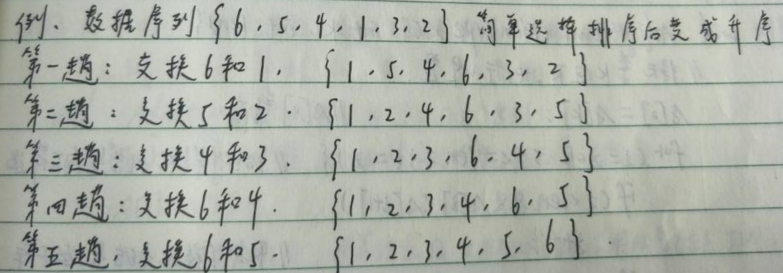 例、数据序列{6,5,4,1,3,2}简单选择排序后变成升序
第一趟:交换6和1. {1,5,4,6,3,2}
第二趟:交换5和2. {1,2,4,6,3,5}
第三趟:交换4和3. {1,2,3,6,4,5}
第四趟:交换6和4. {1,2,3,4,6,5}
第五趟.交换6和5. {1,2,3,4,5,6}.